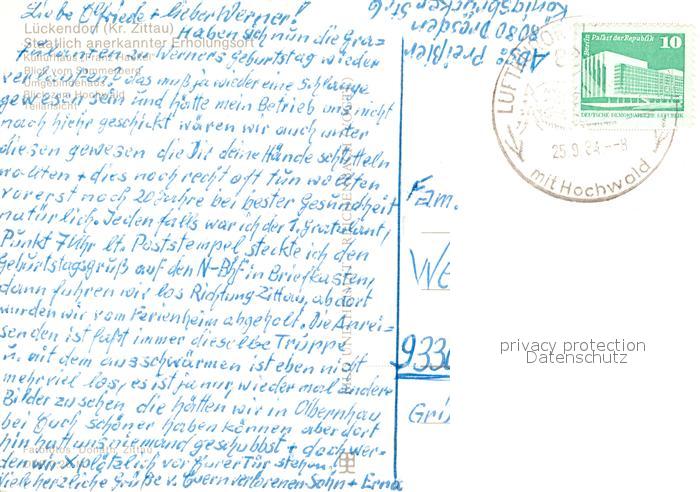 Liebe Elfriede + lieber Werner!
Lückendorf (Kr. Zittau)
Staatlich anerkannter Erholungsort
Haben sich nun die Gra-
zu Werners Geburtstag wieder
verlaufen? das muß ja wieder eine Schlange
gewesen sein und hätte mein Betrieb uns nicht
nach hiehr geschickt wären wir auch unter
diesen gewesen die Dir deine Hände schütteln
wollten + dies noch recht oft tun wollten
vorerst noch 20 Jahre bei bester Gesundheit
natürlich. Jedenfalls war ich der 1. Gratulant,
Punkt 7 Uhr lt. Poststempel steckte ich den
Geburtstagsgruß auf den N-Bhf in Briefkasten,
dann fuhren wir los Richtung Zittau, ab dort
wurden wir vom Ferienheim abgeholt. Die Anrei-
senden ist faßt immer dieselbe Trüppe
u. mit dem ausschwärmen ist eben nicht
mehr viel los, es ist ja nur, wieder mal andere
Bilder zu sehen, die hätten wir in Olbernhau
bei Euch schöner haben können aber dort
hin hat uns niemand geschubbst + doch wer-
den wir X plötzlich vor Eurer Tür stehen.
Viele herzliche Grüße v. Euern verlorenen Sohn + Erna
Blick vom Sommerberg
Umgebindehaus
Blick zum Hochwald
Teilansicht
Abs. Preißler
8080 Dresden
Königsbrücker Str. 6
Berlin Palast der Republik
10
DEUTSCHE DEMOKRATISCHE REPUBLIK
LUFT
25.9.84--8
mit Hochwald
Fam.
We
933
Grü
privacy protection
Datenschutz